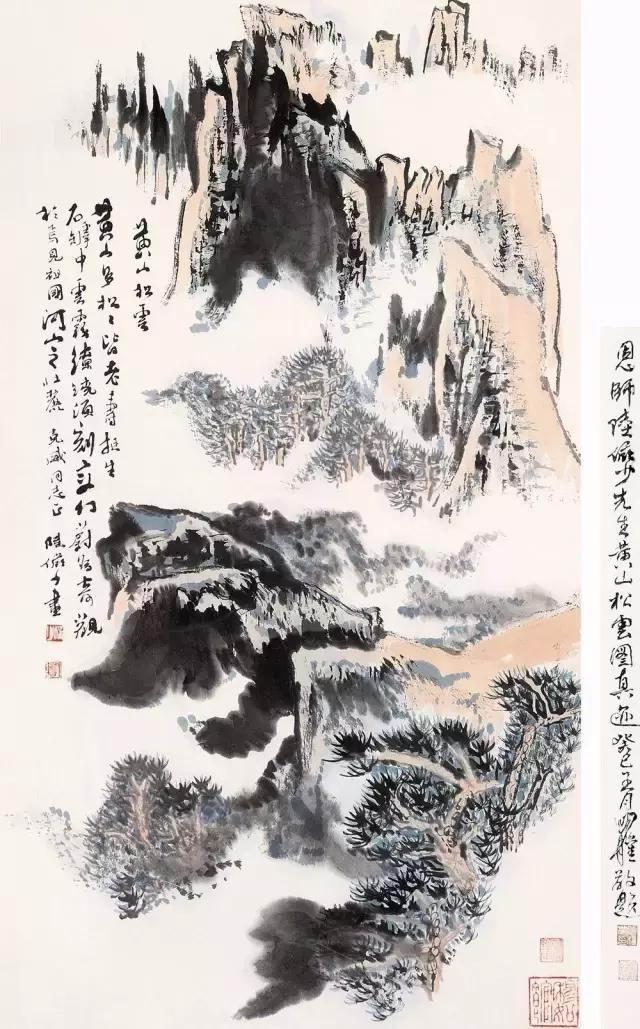 黄山松雲
黄山多松〻皆老壽挺生
石罅中雲霧繚繞頃刻變幻蔚為奇觀
於焉見祖國河山之壯麗 同志正 陸儼少畫
恩師陸儼少先生黄山松雲圖真迹 癸巳 月 敬題